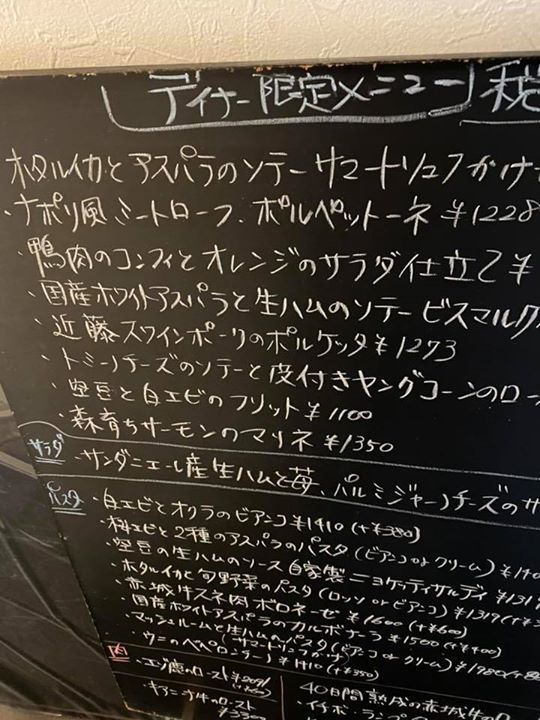 ディナー限定メニュー 税
ホタルイカとアスパラのソテー サマートリュフがけ
・ナポリ風ミートローフ、ポルペットーネ ¥1228
・鴨肉のコンフィとオレンジのサラダ仕立て ¥
・国産ホワイトアスパラと生ハムのソテー ビスマルク
・近藤スワインポークのポルケッタ ¥1273
・トミーノチーズのソテーと皮付きヤングコーンのロー
・空豆と白エビのフリット ¥1100
・森育ちサーモンのマリネ ¥1350
サラダ
・サンダニエーレ産生ハムと苺、パルミジャーノチーズのサ
パスタ
・白エビとオクラのビアンコ ¥1410 (+¥380)
・桜エビと2種のアスパラのパスタ (ビアンコ or クリーム) ¥140
・空豆の生ハムのソース 自家製ニョケッティサルディ ¥131
・ホタルイカと旬野菜のパスタ (ロッソ or ビアンコ) ¥1319
・赤城牛スネ肉ボロネーゼ ¥1600 (+¥600)
・国産ホワイトアスパラのカルボナーラ ¥1500 (+¥400)
・マッシュルームと生ハムのパスタ (ビアンコ or クリーム) ¥1980
(サマートリュフがけ)
・ウニのペペロンチーノ ¥1410 (+¥350)
肉
・エゾ鹿のロースト ¥2091
40日間熟成の赤城牛の